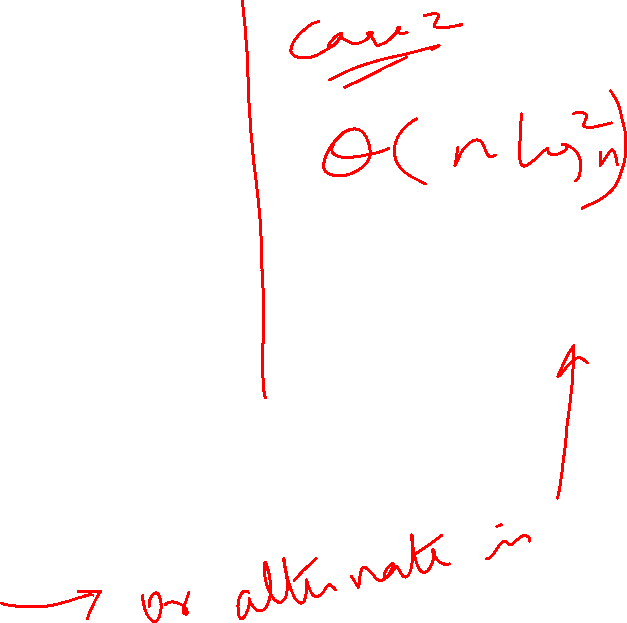 Case 2
Θ(n log²n)
→ or alternate in